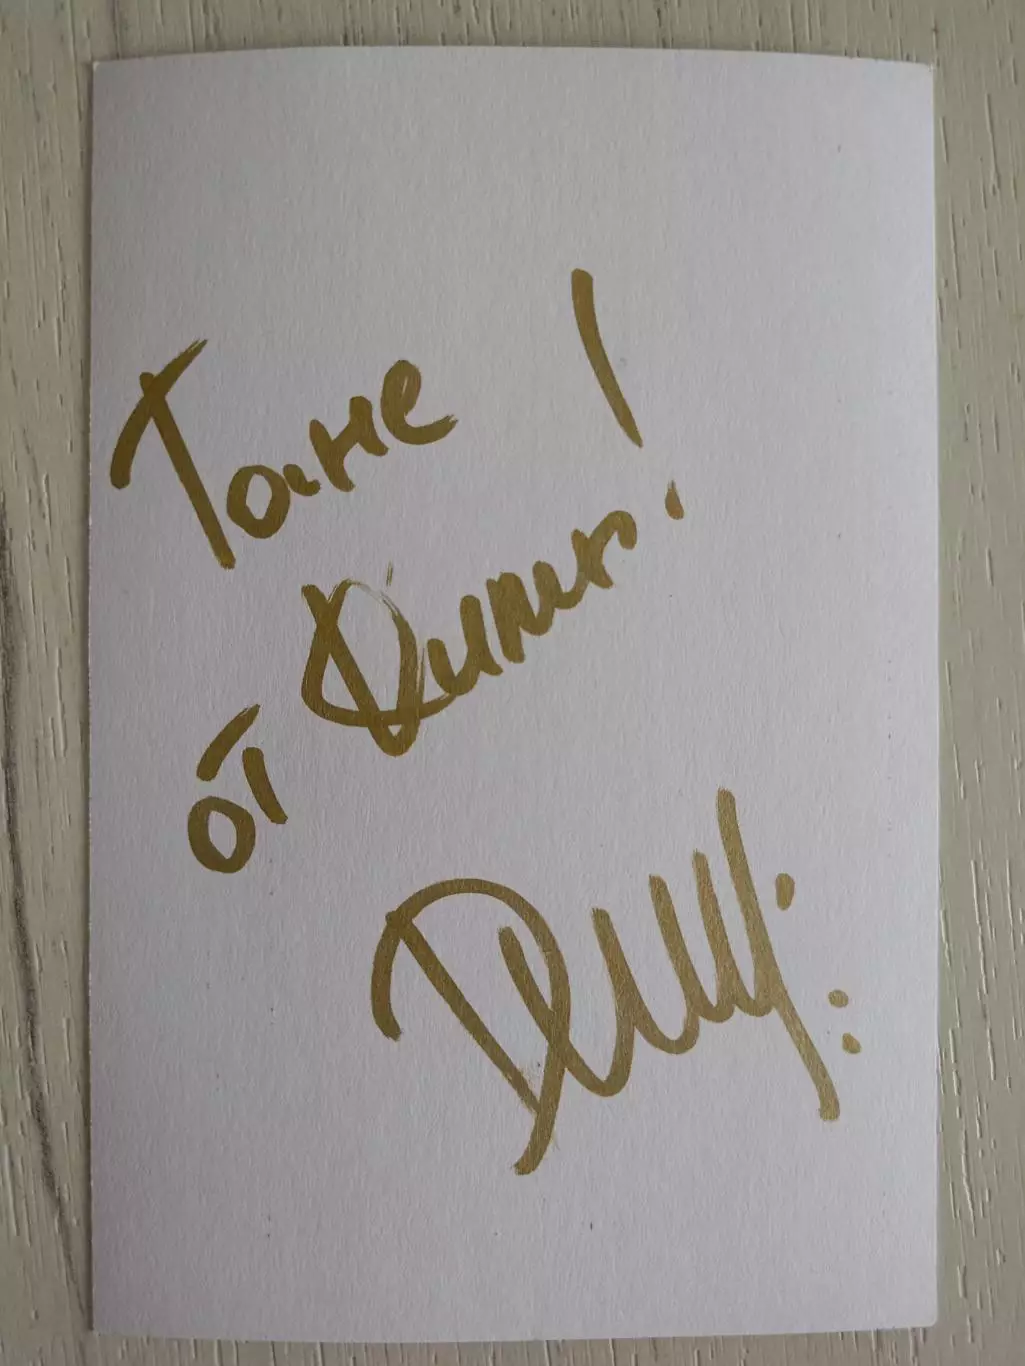 Тане
от Димы!